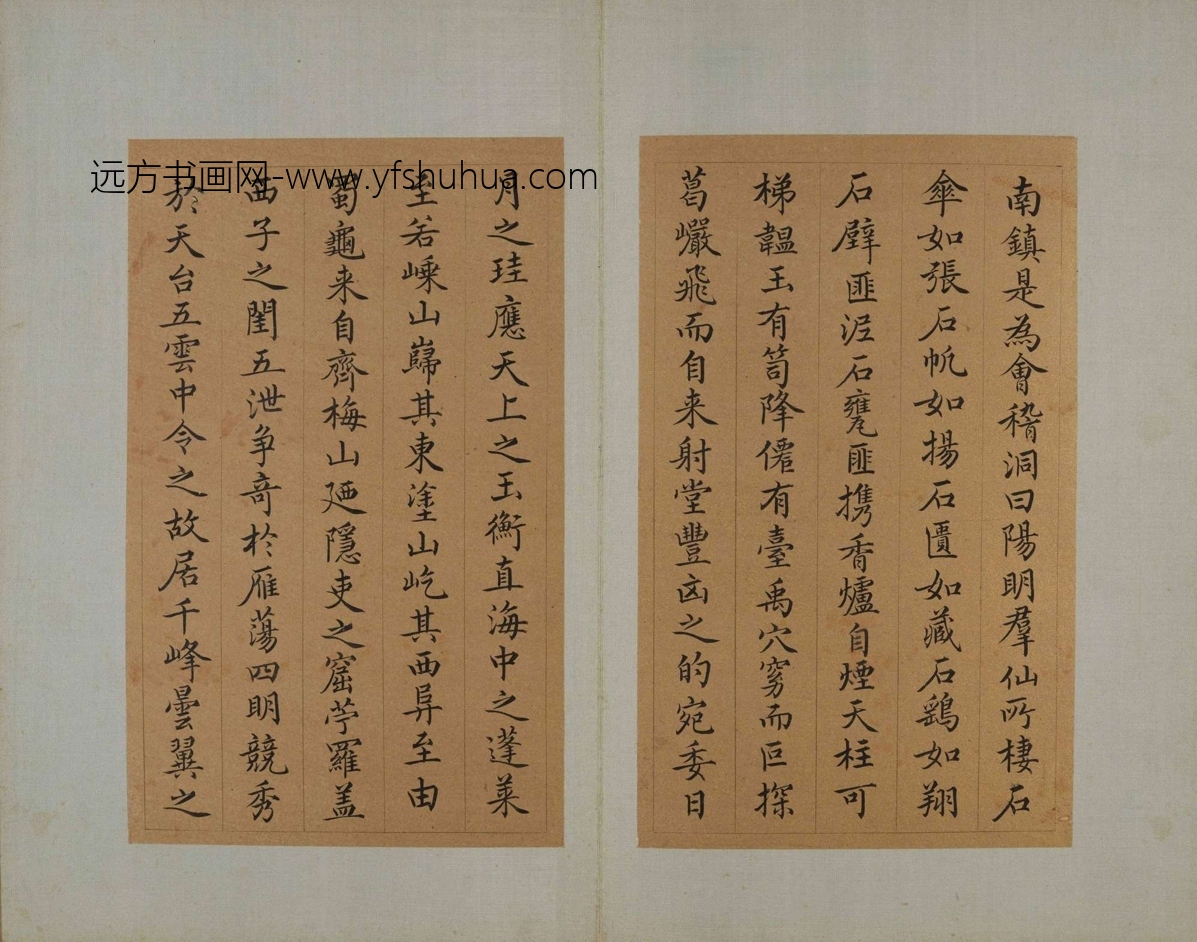 南鎮是為會稽洞曰陽明羣仙所棲石
傘如張石帆如揚石匱如藏石鷂如翔
石壁匪泥石甕匪携香爐自煙天柱可
梯韞玉有笥降僊有臺禹穴窈而叵探
葛巗飛而自来射堂豐凶之的宛委日
月之珪應天上之玉衡直海中之蓬萊
至若嵊山巋其東塗山屹其西异至由
蜀龜来自齊梅山廼隱吏之窟苧羅盖
西子之閨五泄争奇於雁蕩四明競秀
於天台五雲中令之故居千峰曇翼之
远方书画网-www.yfshuhua.com